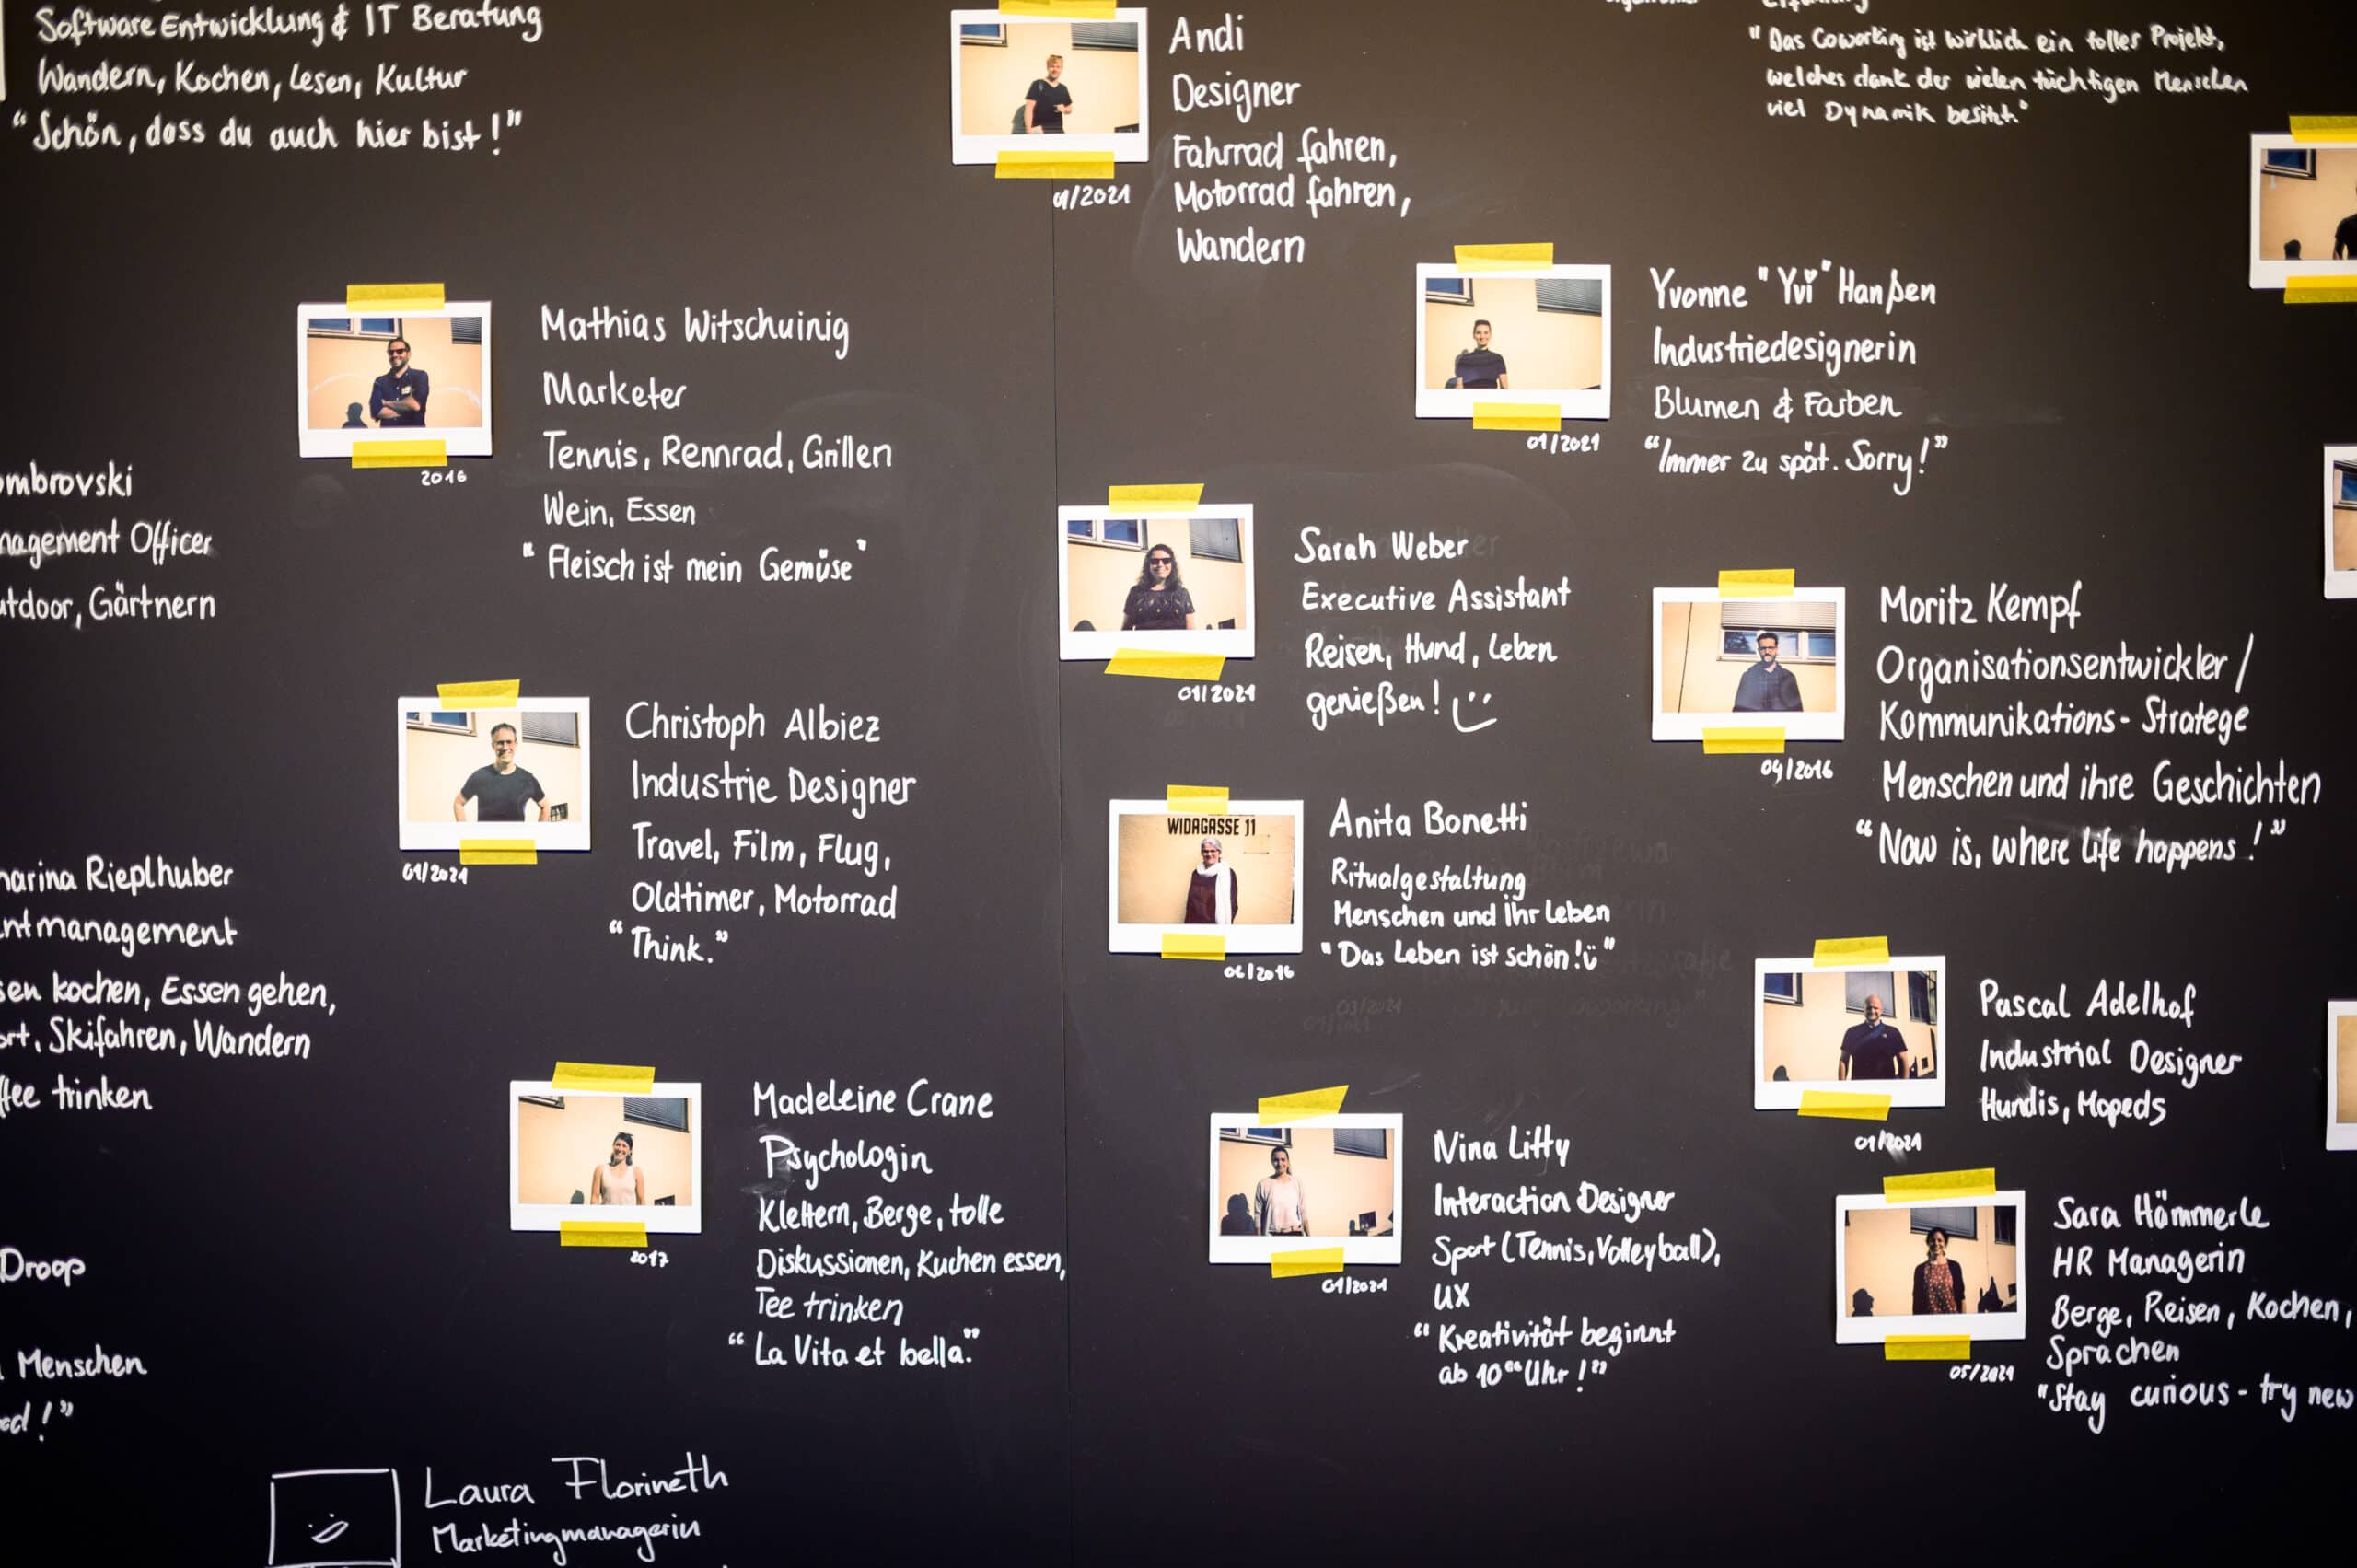 Software Entwicklung & IT Beratung
Wandern, Kochen, Lesen, Kultur
"Schön, dass du auch hier bist!"
Andi
Designer
Fahrrad fahren,
Motorrad fahren,
Wandern
01/2021
"Das Coworking ist wirklich ein tolles Projekt,
welches dank der vielen tüchtigen Menschen
viel Dynamik besitzt."
Mathias Witschuinig
Marketer
Tennis, Rennrad, Grillen
Wein, Essen
"Fleisch ist mein Gemüse"
2016
Yvonne "Yvi" Hanßen
Industriedesignerin
Blumen & Farben
"Immer zu spät. Sorry!"
01/2021
ombrovski
nagement Officer
utdoor, Gärtnern
Sarah Weber
Executive Assistant
Reisen, Hund, Leben
genießen!
01/2021
Moritz Kempf
Organisationsentwickler/
Kommunikations-Stratege
Menschen und ihre Geschichten
"Now is, where life happens!"
09/2016
Christoph Albiez
Industrie Designer
Travel, Film, Flug,
Oldtimer, Motorrad
"Think."
01/2021
WIDAGASSE 11
Anita Bonetti
Ritualgestaltung
Menschen und ihr Leben
"Das Leben ist schön!ü"
06/2016
03/2021
harina Rieplhuber
ntmanagement
sen kochen, Essen gehen,
ort, Skifahren, Wandern
ffee trinken
Pascal Adelhof
Industrial Designer
Hundis, Mopeds
01/2021
Madeleine Crane
Psychologin
Klettern, Berge, tolle
Diskussionen, Kuchen essen,
Tee trinken
"La Vita et bella."
2017
Nina Litty
Interaction Designer
Sport (Tennis, Volleyball),
UX
"Kreativität beginnt
ab 10⁰⁰ Uhr!"
01/2021
Sara Hämmerle
HR Managerin
Berge, Reisen, Kochen,
Sprachen
"Stay curious - try new
05/2021
Droop
Menschen
Laura Florineth
Marketingmanagerin